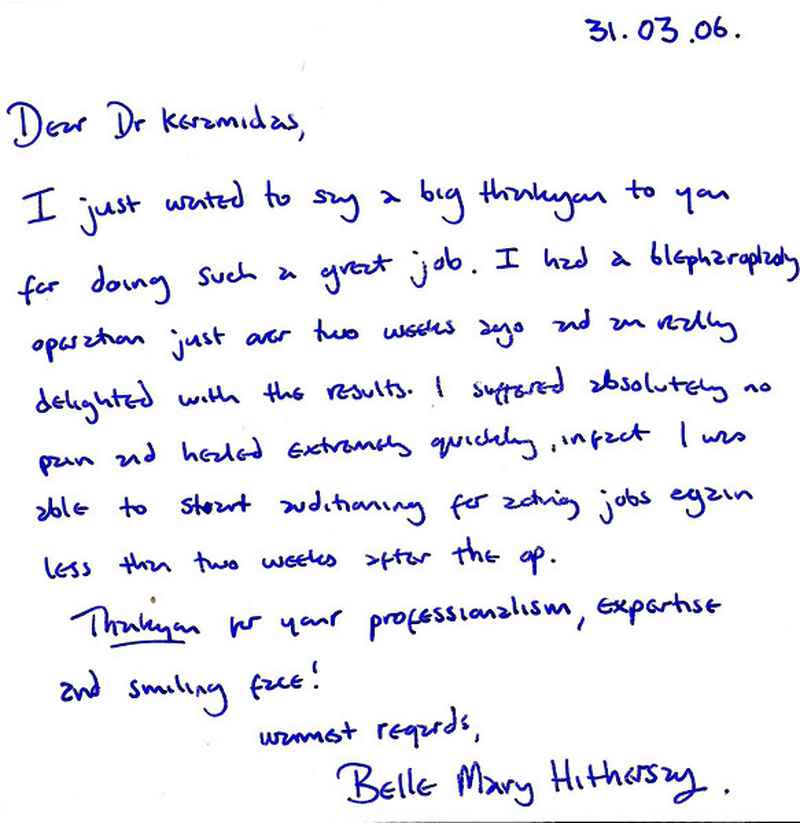 31.03.06.
Dear Dr Keramidas,
I just wanted to say a big thankyou to you
for doing such a great job. I had a blepharoplasty
operation just over two weeks ago and am really
delighted with the results. I suffered absolutely no
pain and healed extremely quickly, infact I was
able to start auditioning for acting jobs again
less than two weeks after the op.
Thankyou for your professionalism, expertise
and smiling face!
warmest regards,
Belle Mary Hithersay.